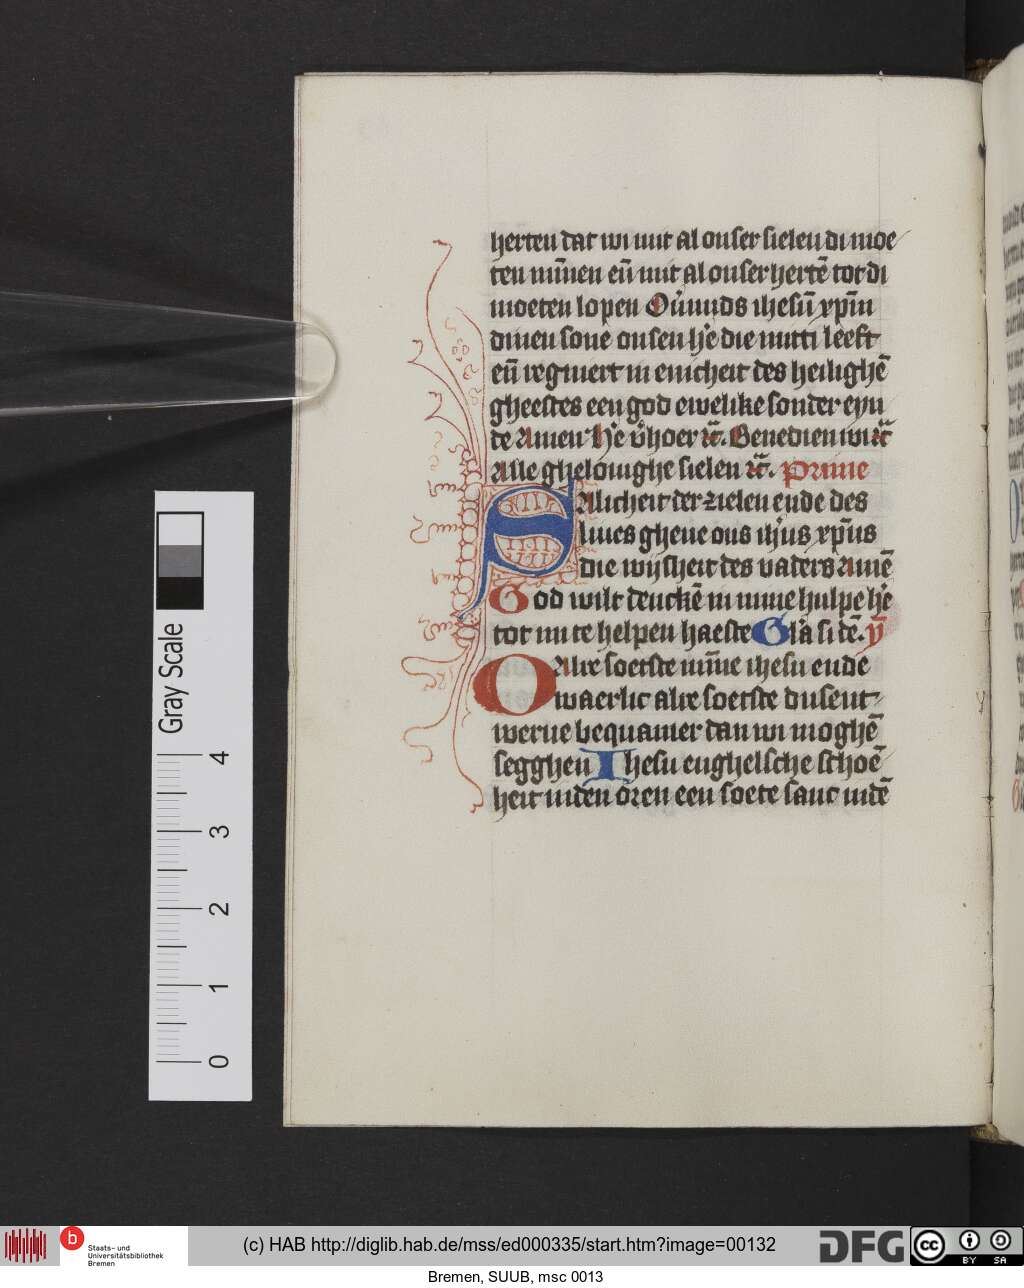 herten dat wi mit al onser sielen di moe
ten minnen en̄ mit al onser hertē tot di
moeten lopen Ouͥmids ihesū xp̄m
dinen sone onsen he᷑ die mitti leeft
en̄ regniert in enicheit des heilighē
gheestes een god ewelike sonder eyn
de Amen He᷑ v᷑hoer ꝛc̄. Benedien wi ꝛc̄
Alle ghelouighe sielen ꝛc̄. Prime
SAlicheit der zielen ende des
liues gheue ons ih̄us xp̄us
die wijsheit des vaders Amē
God wilt denckē in mine hulpe he᷑
tot mi te helpen haeste Glīa si dē. ym̄
OAlre soetste mīne ihesu ende
waerlic alre soetste dusent
werue bequamer dan wi moghē
segghen Ihesu enghelsche schoē
heit inden oren een soete sanc indē
Gray Scale
4
3
2
1
0
b
Staats- und
Universitätsbibliothek
Bremen
(c) HAB http://diglib.hab.de/mss/ed000335/start.htm?image=00132
DFG
cc
BY SA
Bremen, SUUB, msc 0013